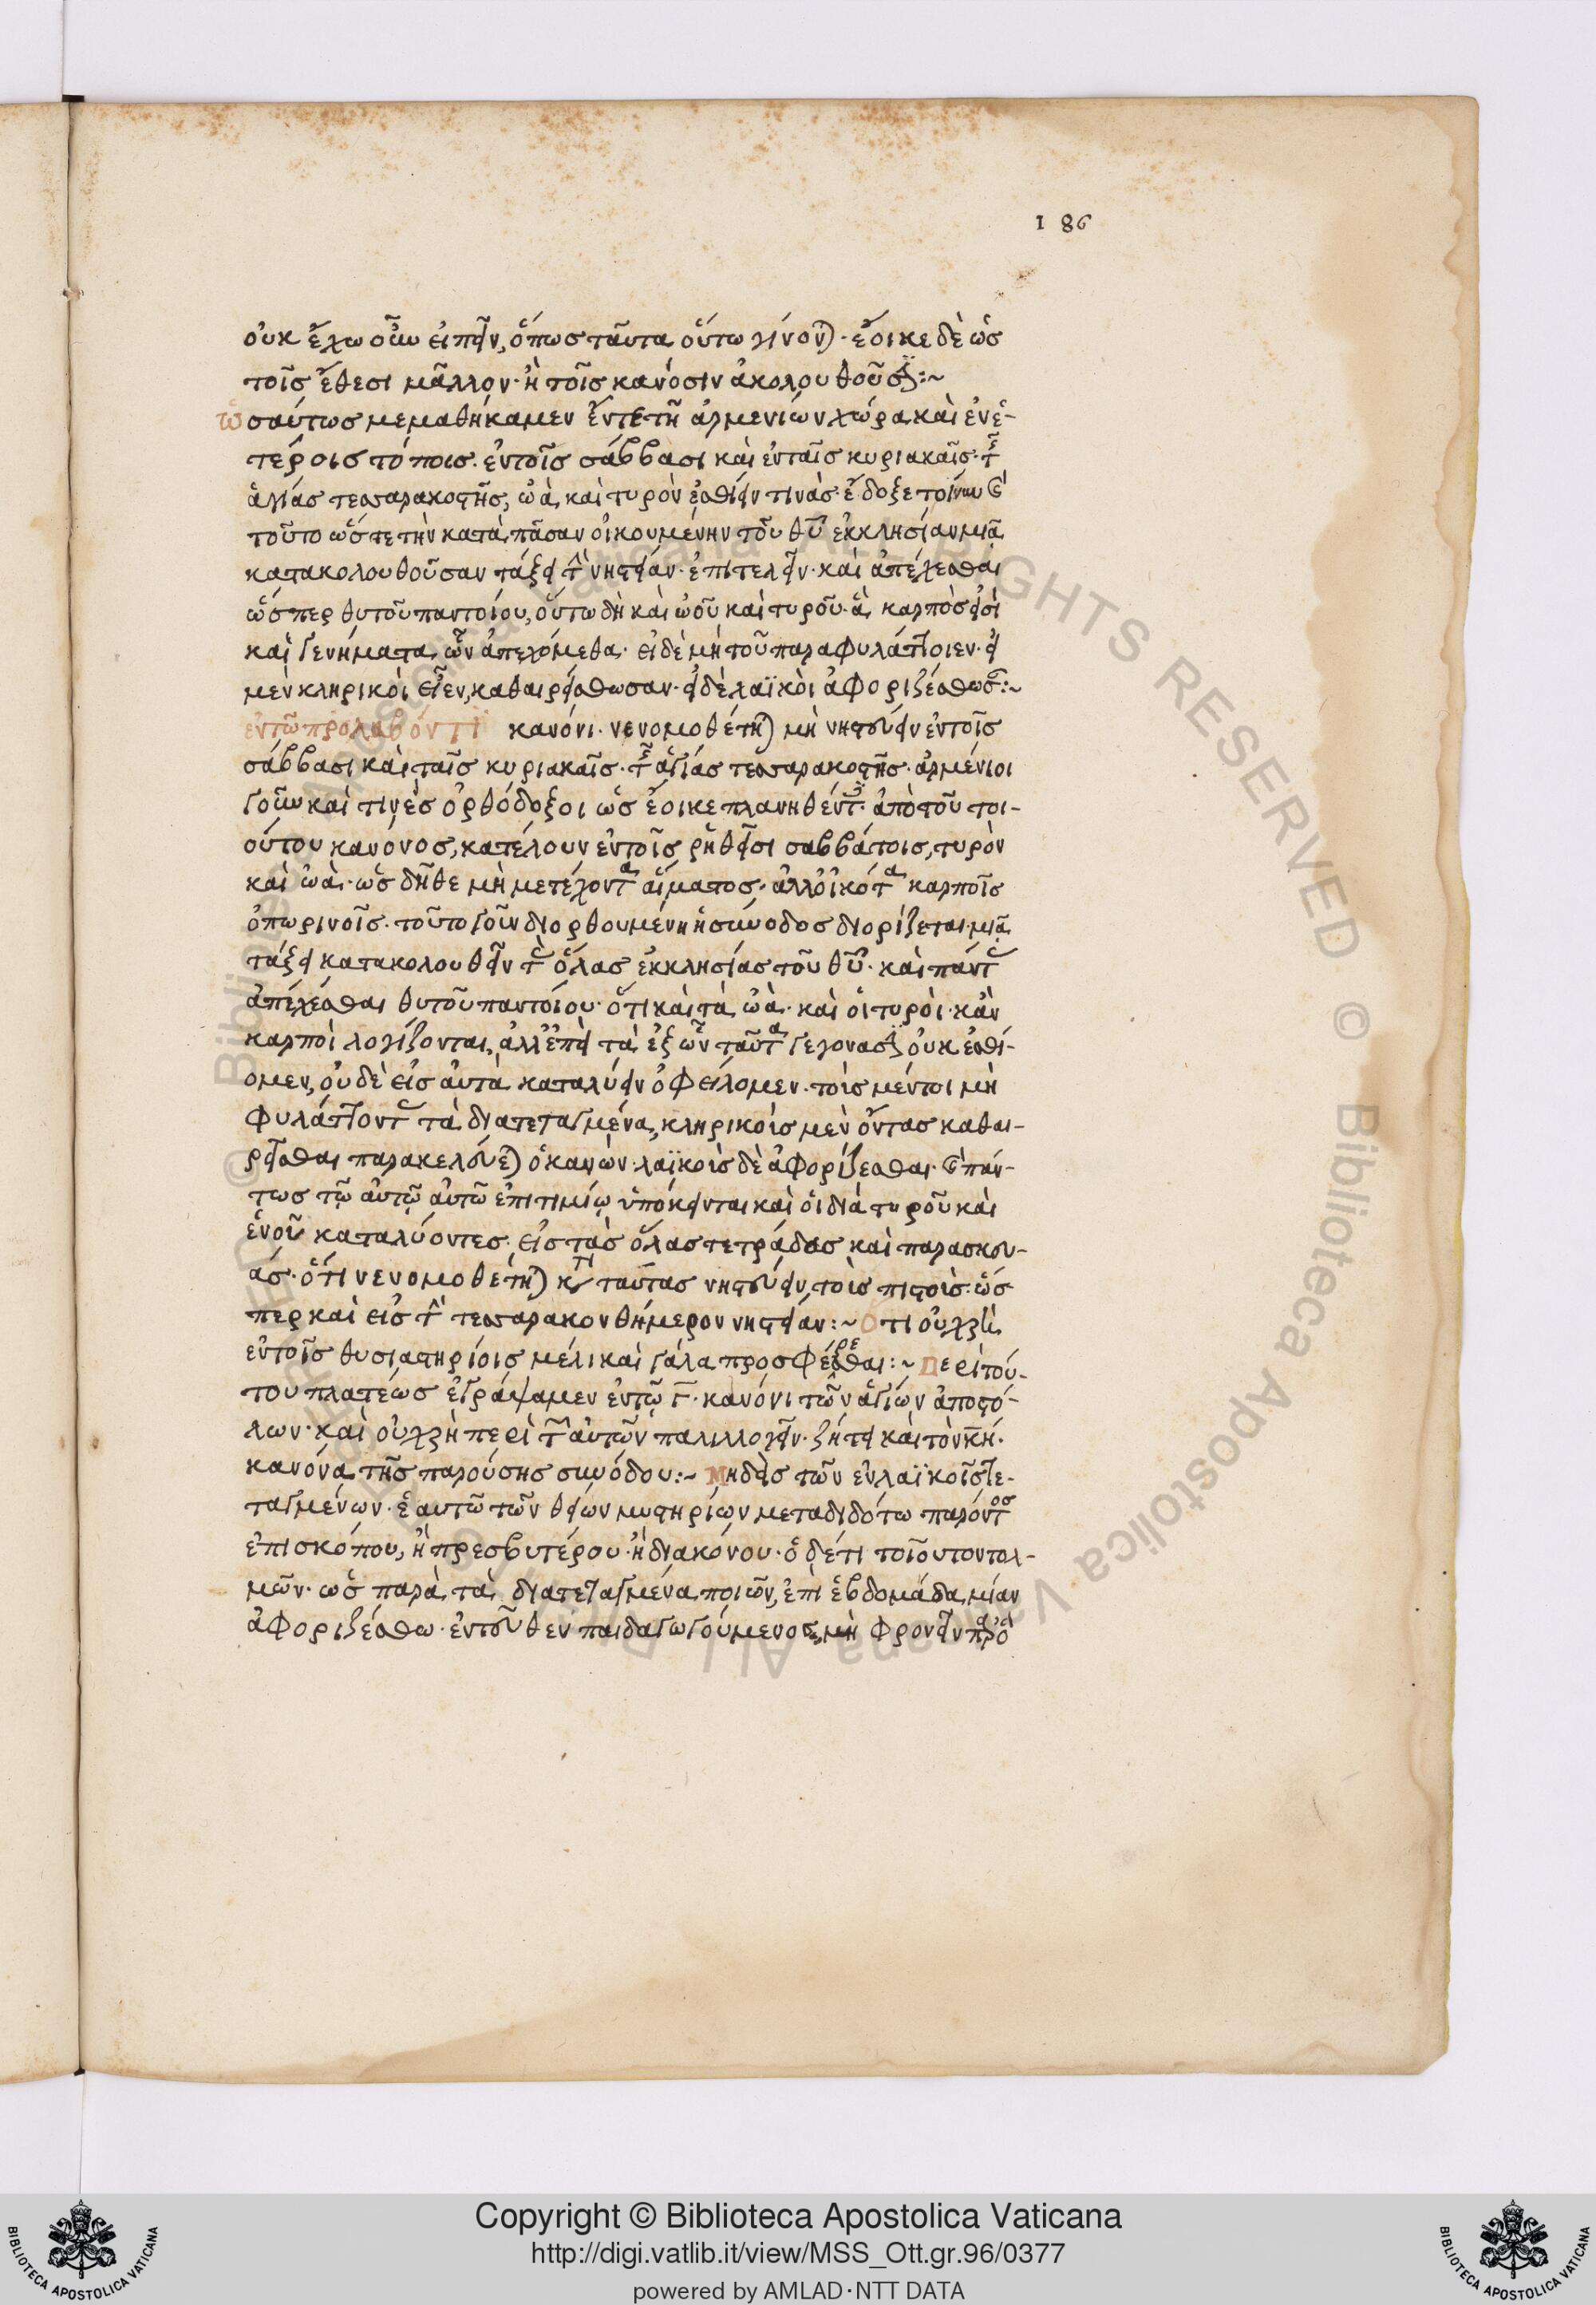 186
οὐκ ἔχω οὖν εἰπεῖν, ὅπως ταῦτα οὕτω γίνονται· ἔοικε δὲ ὡς
τοῖς ἔθεσι μᾶλλον· ἢ τοῖς κανόσιν ἀκολουθοῦσι:~
ὡσαύτως μεμαθήκαμεν ἔν τε τῆ ἀρμενίων χώρα καὶ ἐν ἑ-
τέροις τόποις· ἐν τοῖς σάββασι καὶ ἐν ταῖς κυριακαῖς· τῆς
ἁγίας τεσσαρακοστῆς, ὠὰ καὶ τυρὸν ἐσθίειν τινάς· ἔδοξε τοίνυν καὶ
τοῦτο ὥστε τὴν κατὰ πᾶσαν οἰκουμένην τοῦ θῦ ἐκκλησίαν μιᾶ
κατακολουθοῦσαν τάξει τὴν νηστείαν· ἐπιτελεῖν· καὶ ἀπέχεσθαι
ὥσπερ θυτοῦ παντοίου, οὕτω δὴ καὶ ὠοῦ καὶ τυροῦ· ἃ καρπὸς εἰσὶ
καὶ γενήματα ὧν ἀπεχόμεθα· εἰ δὲ μὴ τοῦ παραφυλάττοιεν· εἰ
μὲν κληρικοὶ εἶεν, καθαιρείσθωσαν· εἰ δὲ λαϊκοὶ ἀφοριζέσθωσαν:~
ἐν τῶ προλαβόντι κανόνι· νενομοθέτηται μὴ νηστεύειν ἐν τοῖς
σάββασι καὶ ταῖς κυριακαῖς· τῆς ἁγίας τεσσαρακοστῆς· ἀρμένιοι
γοῦν καὶ τινὲς ὀρθόδοξοι ὡς ἔοικε πλανηθέντες· ἀπὸ τοῦ τοι-
ούτου κανόνος, κατέλουν ἐν τοῖς ῥηθεῖσι σαββάτοις, τυρὸν
καὶ ὠὰ· ὡς δῆθε μὴ μετέχοντα αἵματος· ἀλλ' ἐοικότα καρποῖς
ὀπωρινοῖς· τοῦτο γοῦν διορθουμένη ἡ σύνοδος διορίζεται· μιᾶ
τάξει κατακολουθεῖν τὰς ὅλας ἐκκλησίας τοῦ θῦ· καὶ πάντας
ἀπέχεσθαι θυτοῦ παντοίου· ὅτι καὶ τὰ ὠὰ· καὶ οἱ τυροὶ· κἂν
καρποὶ λογίζονται, ἀλλ' ἐπεὶ τὰ ἐξ ὧν ταῦτα γεγόνασιν οὐκ ἐσθί-
ομεν, οὐδὲ εἰς αὐτὰ καταλύειν ὀφείλομεν· τοὶς μέντοι μὴ
φυλάττοντας τὰ διατεταγμένα, κληρικοὶς μὲν ὄντας καθαι-
ρεῖσθαι παρακελεύεται ὁ κανών· λαϊκοὶς δὲ ἀφορίζεσθαι· καὶ πάν-
τως τῶ αὐτῶ αὐτῶ ἐπιτιμίῳ ὑπόκεινται καὶ οἱ διὰ τυροῦ καὶ
ἐνοῦ καταλύοντες· εἰς τὰς ὅλας τετράδας καὶ παρασκευ-
άς· ὅτι νενομοθέτηται κατὰ ταύτας νηστεύειν, τοὶς πιστοὶς· ὥσ
περ καὶ εἰς τὴν τεσσαρακονθήμερον νηστείαν:~ Ὅτι οὐ χρὴ
ἐν τοῖς θυσιαστηρίοις μέλι καὶ γάλα προσφέρεσθαι:~ Περὶ τού-
του πλατέως ἐγράψαμεν ἐν τῶ γ̅· κανόνι τῶν ἁγίων ἀποστό-
λων· καὶ οὐ χρὴ περὶ τῶν αὐτῶν παλιλλογεῖν· ζήτει καὶ τὸν κ̅η·
κανόνα τῆς παρούσης συνόδου:~ Μηδεὶς τῶν ἐν λαϊκοῖς τε-
ταγμένων· ἑαυτῶ τῶν θείων μυστηρίων μεταδιδότω παρόντος
ἐπισκόπου, ἢ πρεσβυτέρου· ἢ διακόνου· ὁ δέ τι τοιοῦτον τολ-
μῶν· ὡς παρὰ τὰ διατεταγμένα ποιῶν, ἐπὶ ἑβδομάδα μίαν
ἀφοριζέσθω· ἐντεῦθεν παιδαγωγούμενος, μὴ φρονεῖν παρ' ὃ
Copyright © Biblioteca Apostolica Vaticana
http://digi.vatlib.it/view/MSS_Ott.gr.96/0377
powered by AMLAD·NTT DATA